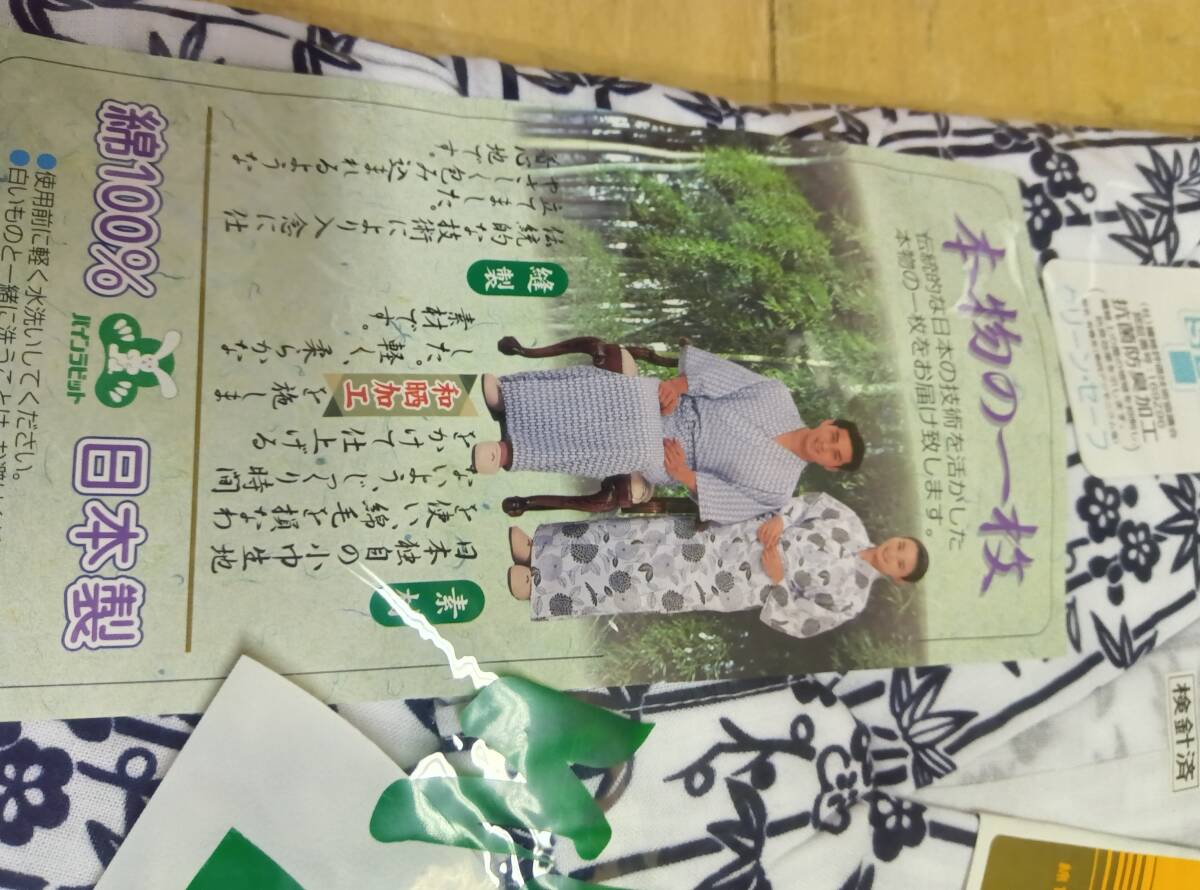 本物の一枚
伝統的な日本の技術を活かした
本物の一枚をお届け致します。
素材
日本独自の小巾生地
を使い、綿毛を損なわ
ないよう、じっくり時間
をかけて仕上げる
和晒加工を施しま
した。軽く、柔らかな
素材です。
縫製
伝統的な技術により入念に仕
立てました。
やさしく包み込まれるような
着心地です。
綿100%
パインラビット
日本製
●使用前に軽く水洗いしてください。
●白いものと一緒に洗うことは
抗菌防臭加工
クリーンセーフ
検針済